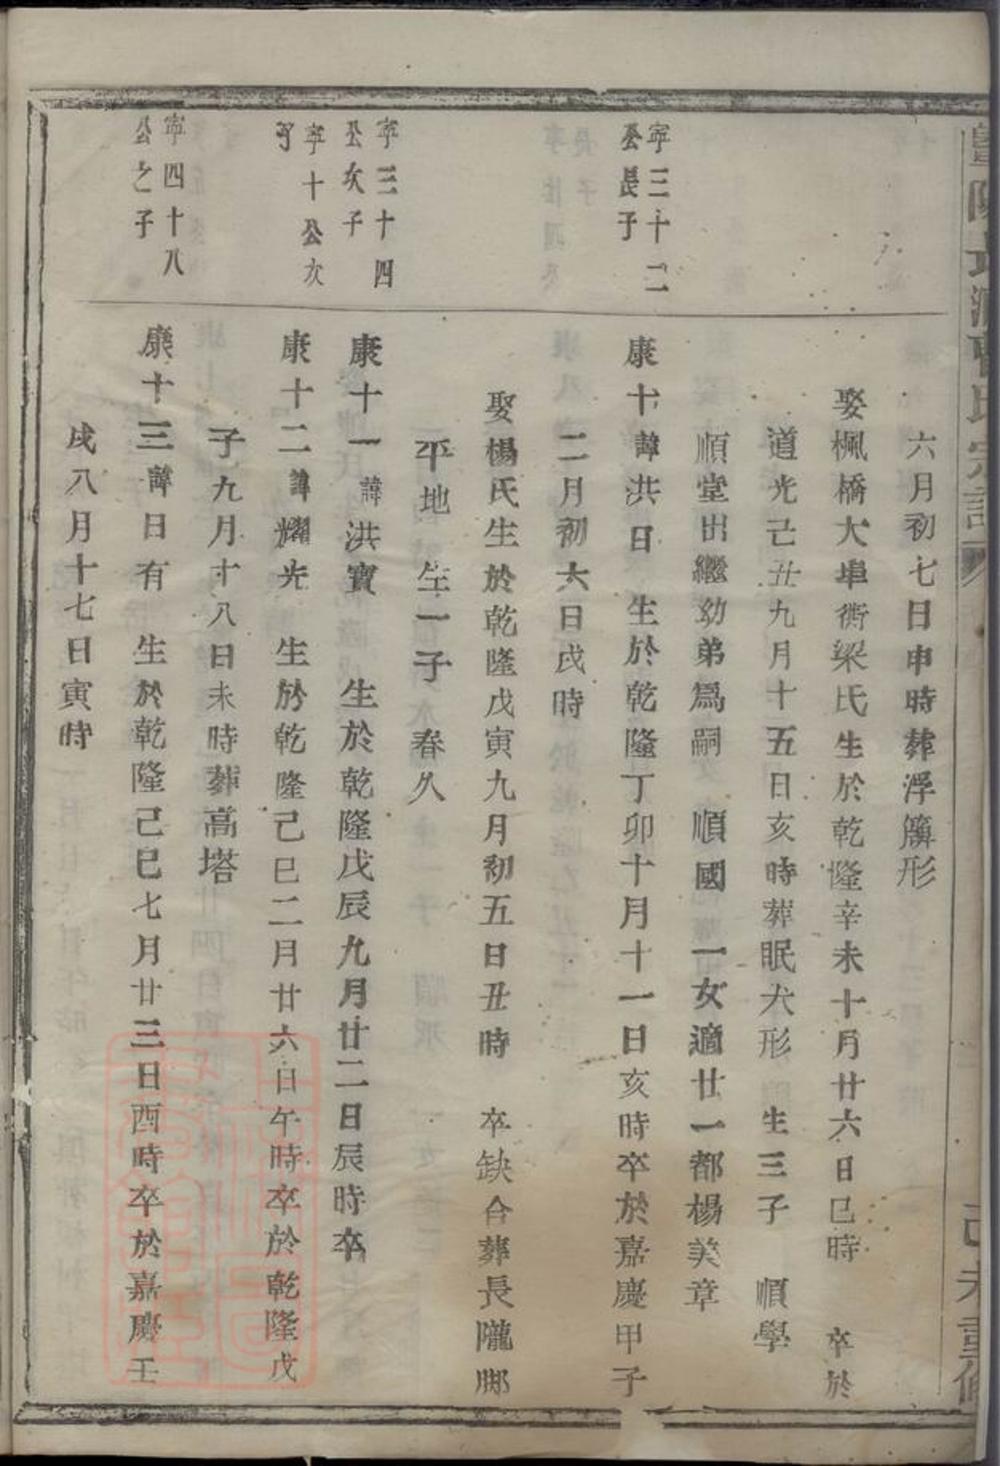 六月初七日申時葬浮簰形
娶楓橋大阜衖梁氏生於乾隆辛未十月廿六日巳時 卒於
道光己丑九月十五日亥時葬眠犬形 生三子 順學
順堂出繼幼弟爲嗣 順國 一女適廿一都楊美章
寕三十二
公長子
康十諱洪日 生於乾隆丁卯十月十一日亥時卒於嘉慶甲子
二月初六日戌時
娶楊氏生於乾隆戊寅九月初五日丑時 卒缺合葬長隴脚
平地 生一子春久
寕三十四
公次子
康十一諱洪寶 生於乾隆戊辰九月廿二日辰時卒
寕十公次
子
康十二諱耀光 生於乾隆己巳二月廿六日午時卒於乾隆戊
子九月十八日未時葬高塔
寕四十八
公之子
康十三諱日有 生於乾隆己巳七月廿三日酉時卒於嘉慶壬
戌八月十七日寅時
己未重修